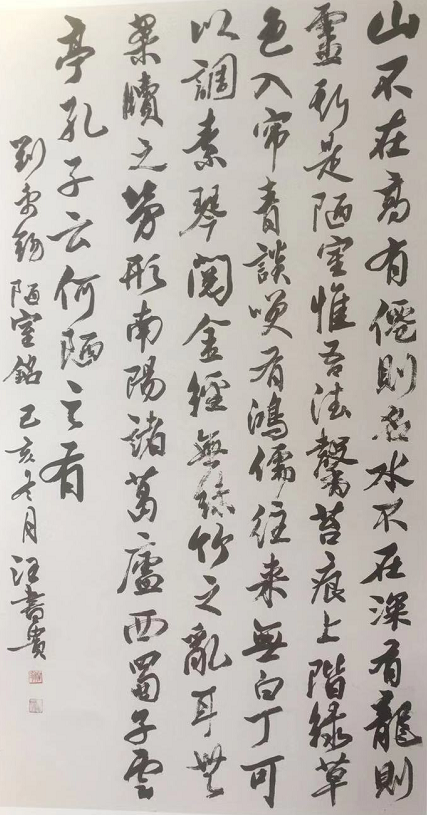 山不在高有僊則名水不在深有龍則
靈斯是陋室惟吾德馨苔痕上階綠草
色入帘青談笑有鴻儒往来無白丁可
以調素琴閱金經無絲竹之亂耳無
案牘之勞形南陽諸葛廬西蜀子雲
亭孔子云何陋之有
劉禹錫陋室銘己亥冬月汪書貴